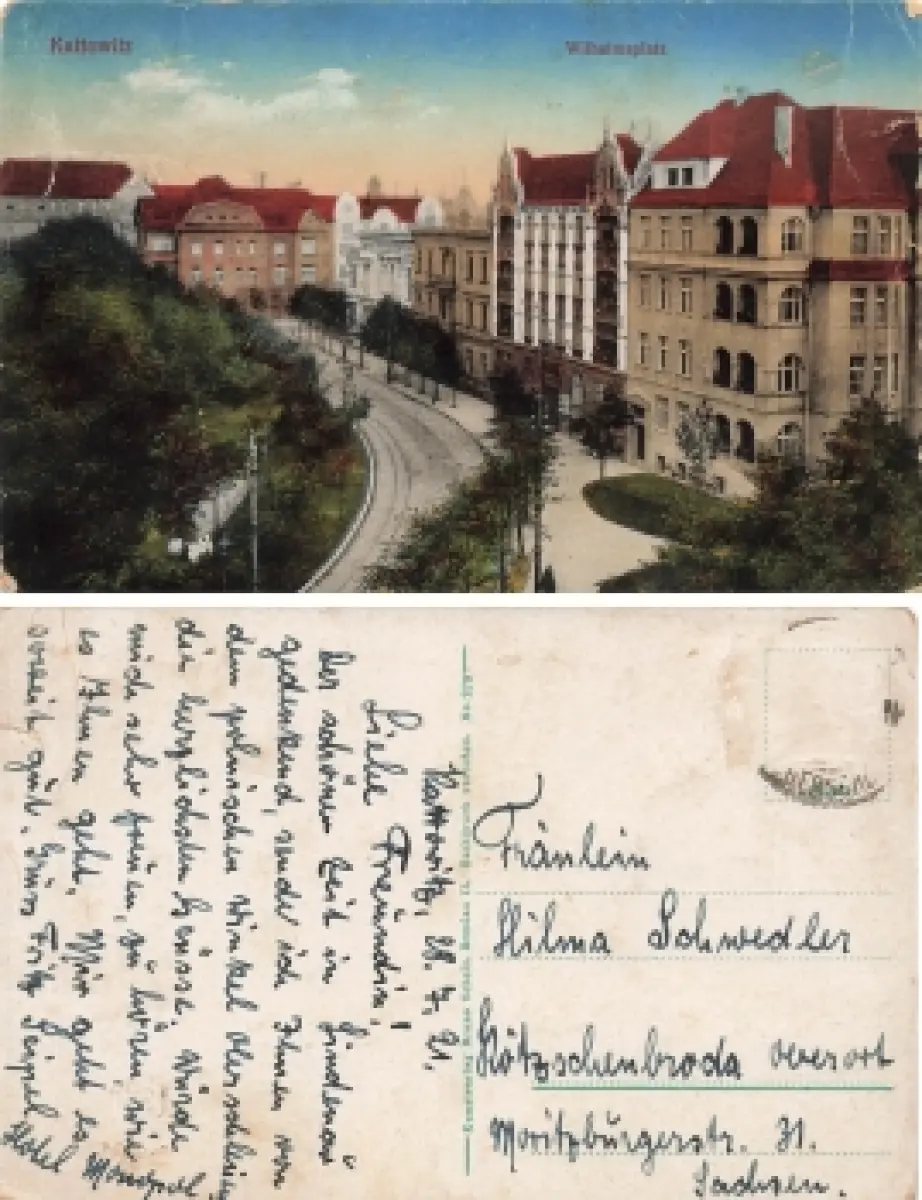 Kattowitz
Wilhelmsplatz
Kattowitz, 28. 7. 21.
Liebe Freundin!
Der schönen Zeit in Lindenau
gedenkend, sende ich Ihnen von
dem polnischen Winkel Oberschlesien
die herzlichsten Grüsse. Würde
mich sehr freuen, zu hören, wie
es Ihnen geht. Mir geht es
soweit gut. Gruss Fritz Seipel
Hotel Monopol
Fräulein
Hilma Schwedler
Kötzschenbroda Oberort
Moritzburgerstr. 31.
Sachsen.